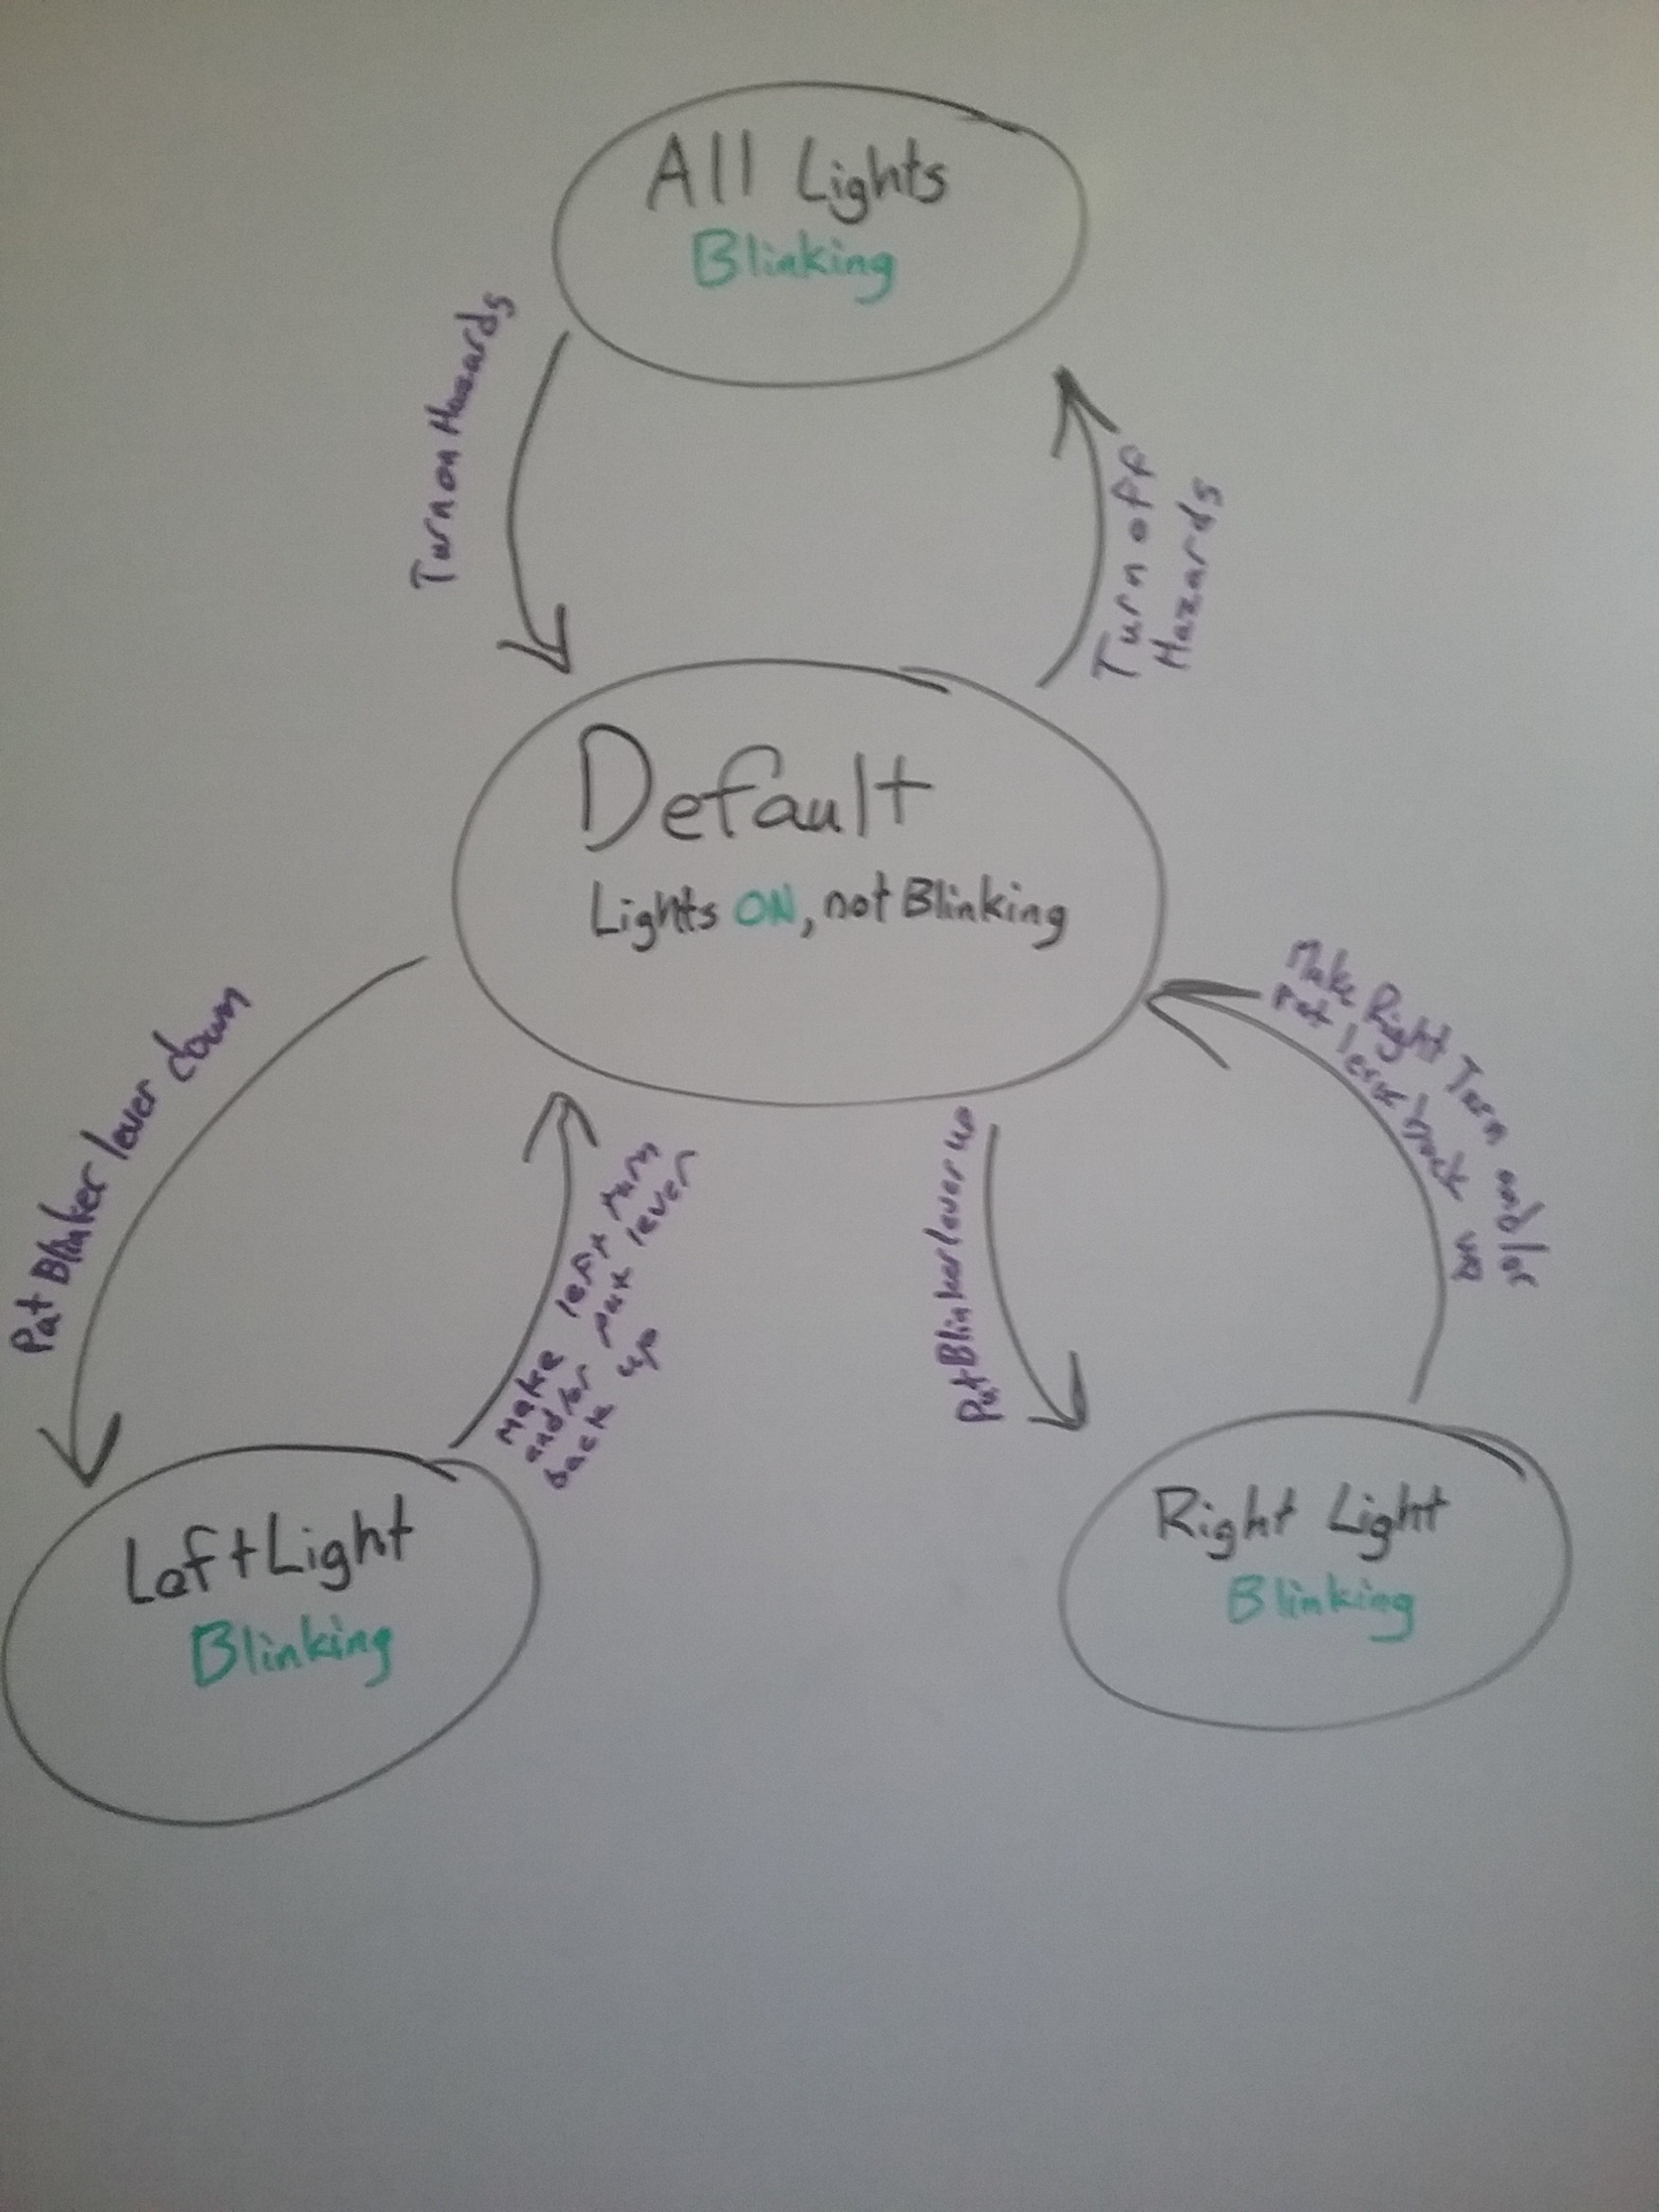 All Lights
Blinking
Turn on Hazards
Turn off
Hazards
Default
Lights ON, not Blinking
Put Blinker lever down
Make left turn
and/or put lever
back up
Put Blinker lever up
Make Right Turn and/or
Put lever back
Left Light
Blinking
Right Light
Blinking